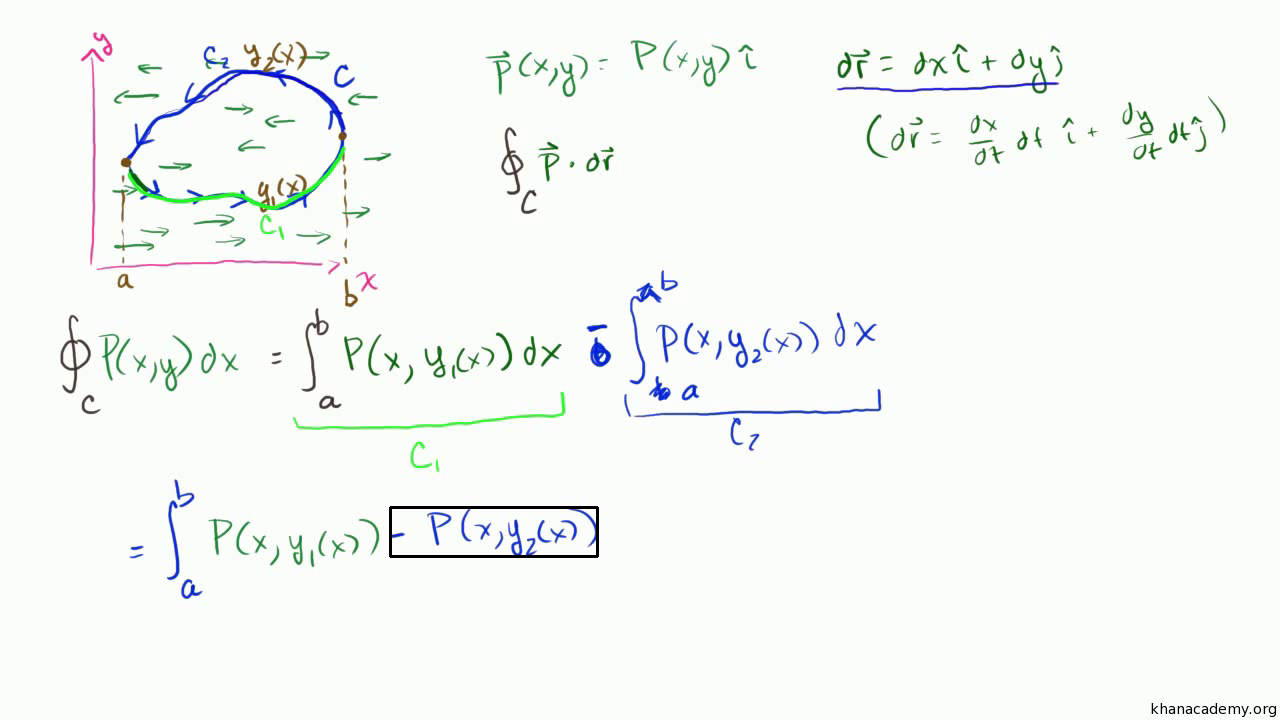 y
C₂ y₂(x)
C
y₁(x)
C₁
a
b x
P⃗(x,y) = P(x,y) î
dr⃗ = dx î + dy ĵ
(dr⃗ = dx/dt dt î + dy/dt dt ĵ)
∮_C P⃗ · dr⃗
∮_C P(x,y) dx = ∫_a^b P(x, y₁(x)) dx - ∫_a^b P(x, y₂(x)) dx
C₁ C₂
= ∫_a^b P(x, y₁(x)) - P(x, y₂(x))
khanacademy.org